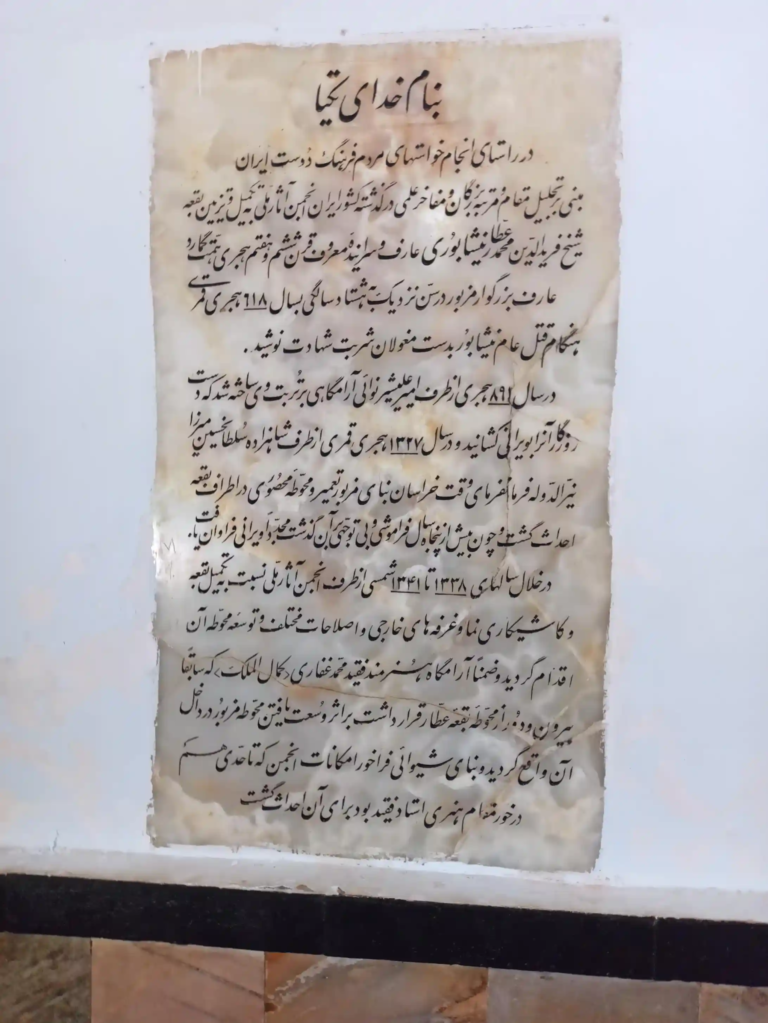 بنام خدای یکتا
در راستای انجام خواستهای مردم فرهنگ دوست ایران
مبنی بر تجلیل مقام و مرتبه بزرگان و مفاخر علمی درگذشته کشور ایران انجمن آثار ملی به تکمیل و تزیین بقعه
شیخ فریدالدین محمد عطار نیشابوری عارف و سراینده معروف قرن ششم و هفتم هجری همت گمارد
عارف بزرگوار مزبور در سن نزدیک به هشتاد سالگی بسال ۶۱۸ هجری قمری
هنگام قتل عام نیشابور بدست مغولان شربت شهادت نوشید .
در سال ۸۹۱ هجری از طرف امیر علیشیر نوائی آرامگاهی بر تربت وی ساخته شد که دست
روزگار آنرا بویرانی کشانید و در سال ۱۳۲۷ هجری قمری از طرف شاهزاده سلطانحسین میرزا
نیرالدوله فرمانفرمای وقت خراسان بنای مزبور تعمیر و محوطه محصوری در اطراف بقعه
احداث گشت و چون بیش از پنجاه سال فراموشی و بی توجهی بر آن گذشت مجدداً ویرانی فراوان یافت.
در خلال سالهای ۱۳۳۸ تا ۱۳۴۱ شمسی از طرف انجمن آثار ملی نسبت به تکمیل بقعه
و کاشیکاری نما و غرفه های خارجی و اصلاحات مختلف و توسعه محوطه آن
اقدام گردید و ضمناً آرامگاه هنرمند فقید محمد غفاری «کمال الملک» که سابقاً
بیرون و دور از محوطه بقعه عطار قرار داشت بر اثر وسعت یافتن محوطه مزبور در داخل
آن واقع گردید و بنای شیوائی فراخور امکانات انجمن که تا حدی هم
درخور مقام هنری استاد فقید بود برای آن احداث گشت